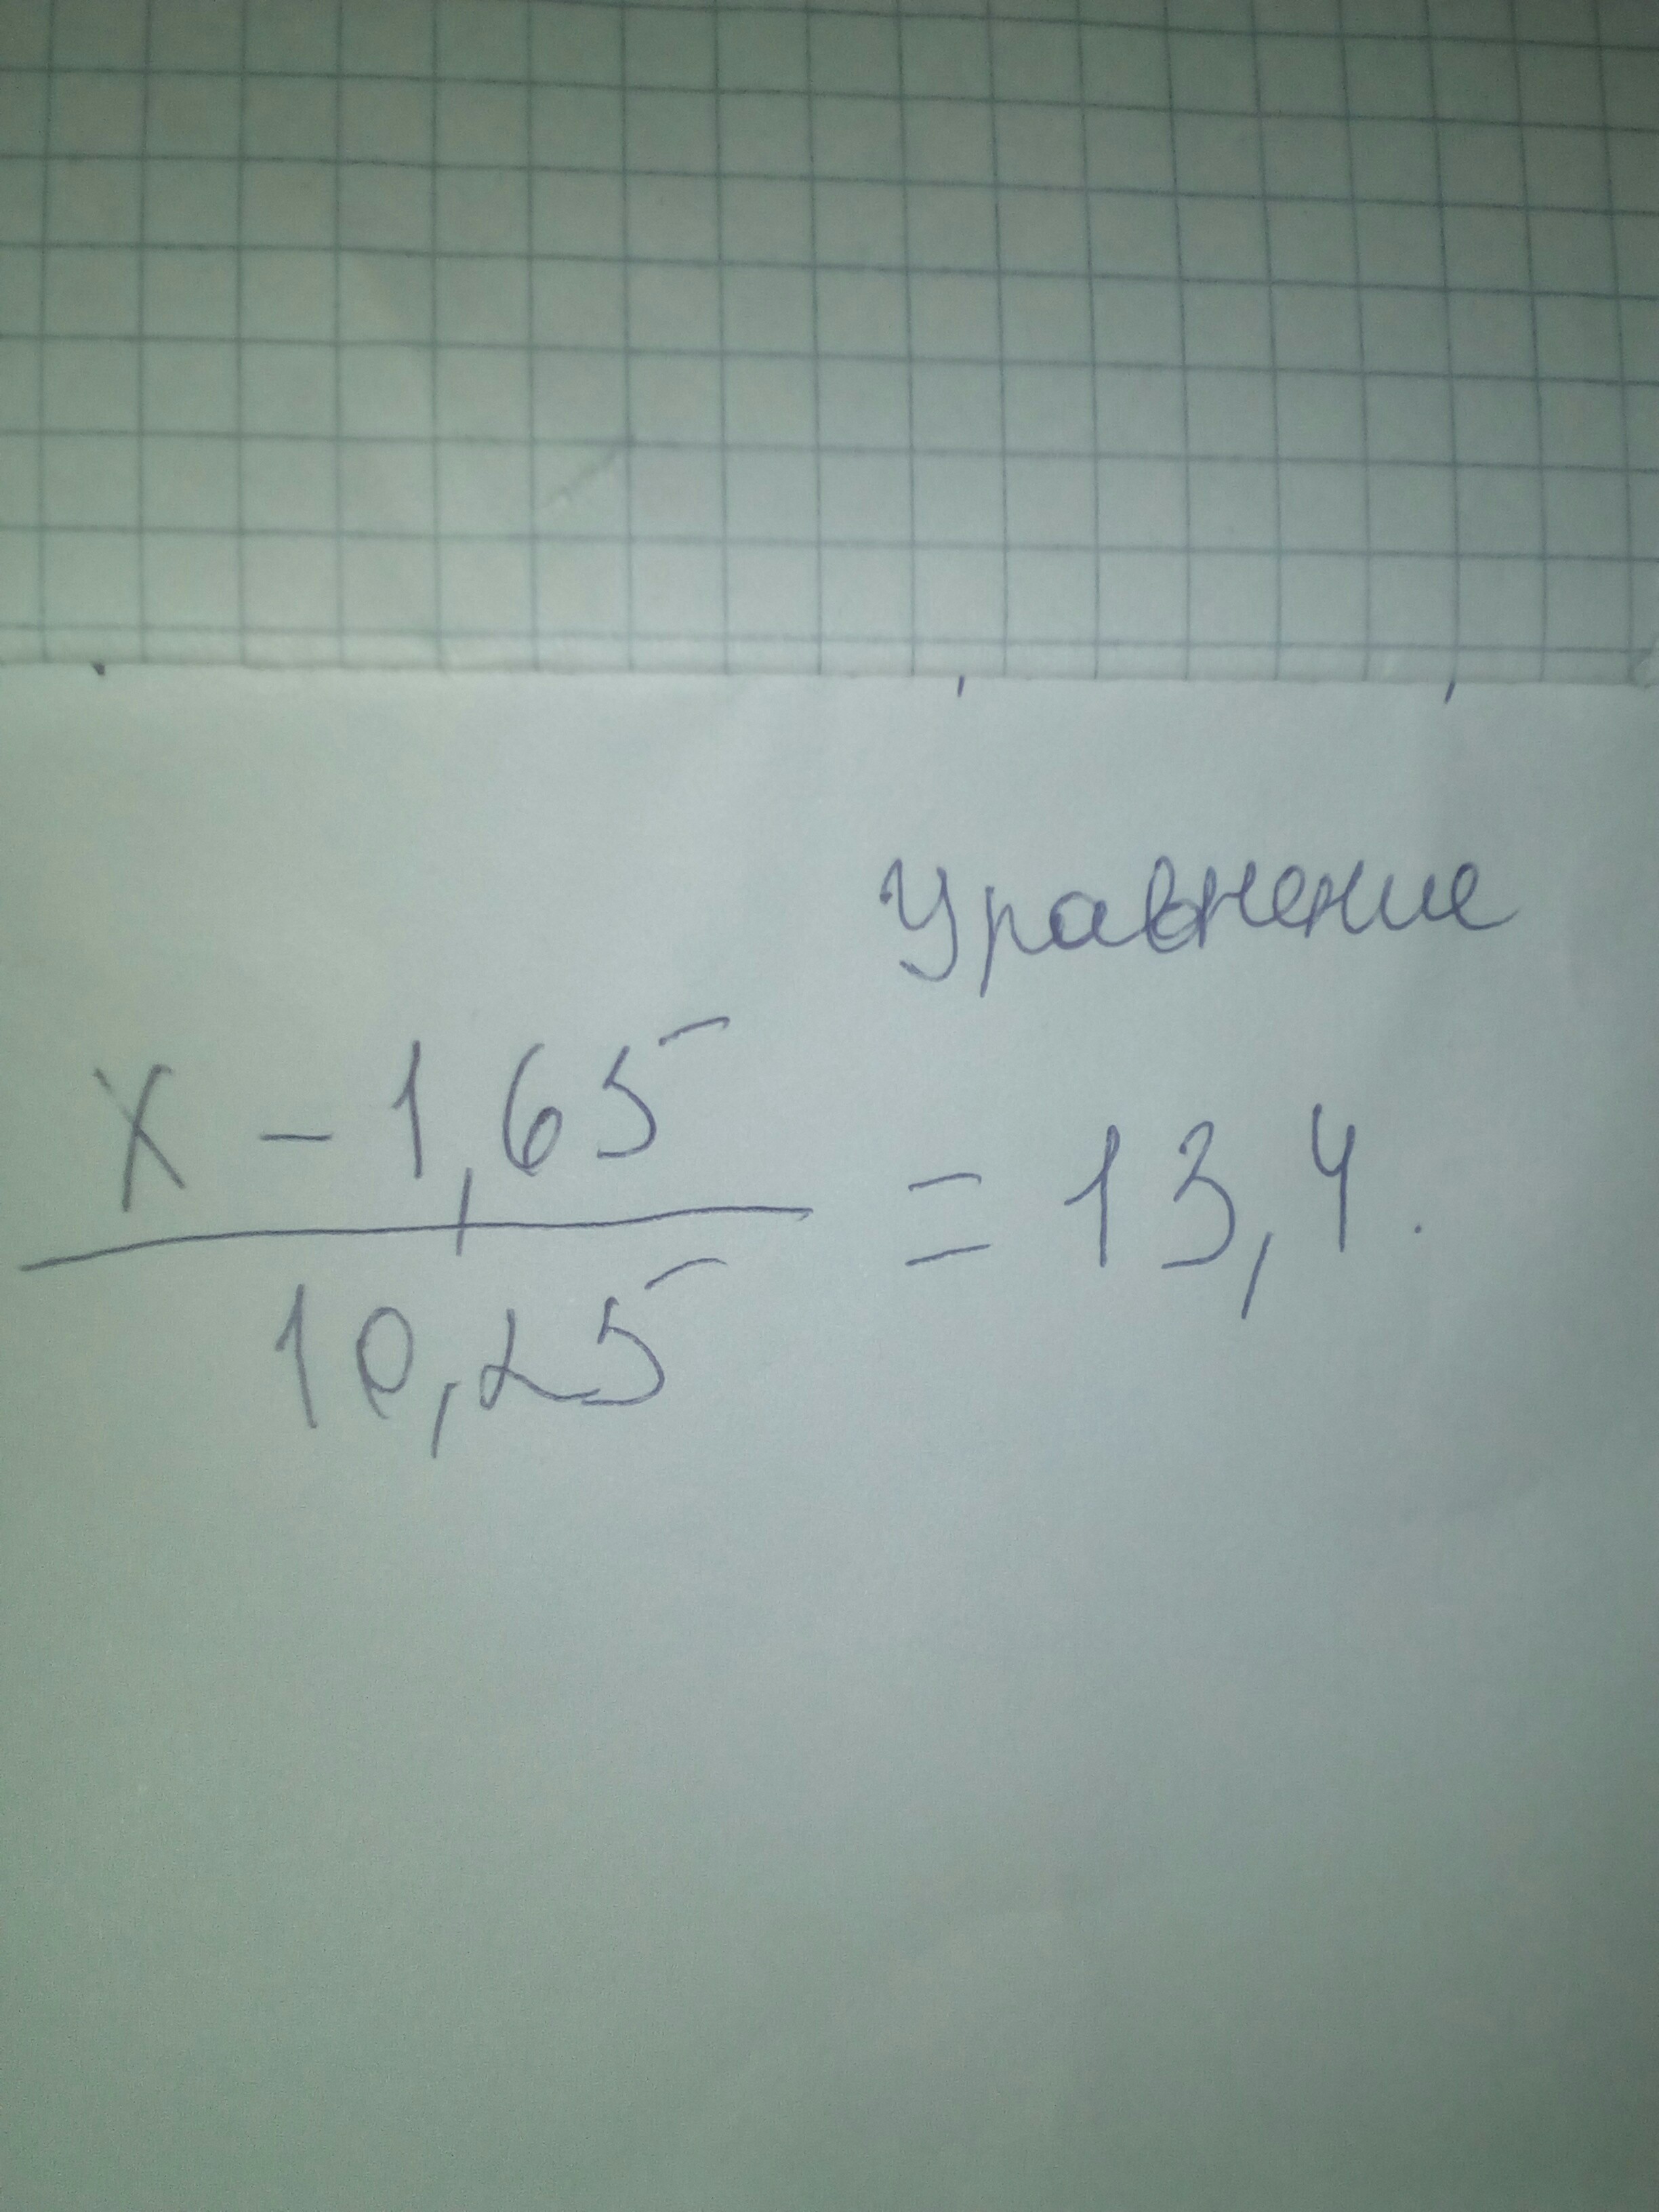 Уравнение
x - 1,65
= 13,4.
10,25